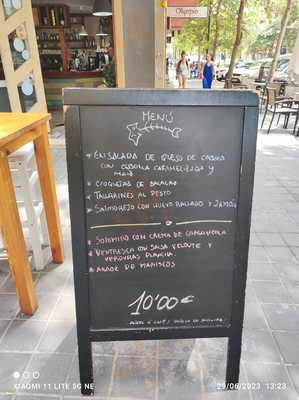 Olympo
MENÚ
* ENSALADA DE QUESO DE CABRA
CON CEBOLLA CARAMELIZADA Y
* CROQUETAS DE BACALAO
* TALLARINES AL PESTO
* SALMOREJO CON HUEVO RALLADO Y JAMÓN
* SOLOMILLO CON CREMA DE
* VENTRESCA CON SALSA VELOUTE Y
VERDURAS PLANCHA
* ARROZ DE MARISCOS
10'00€
XIAOMI 11 LITE 5G NE
29/06/2023 13:23